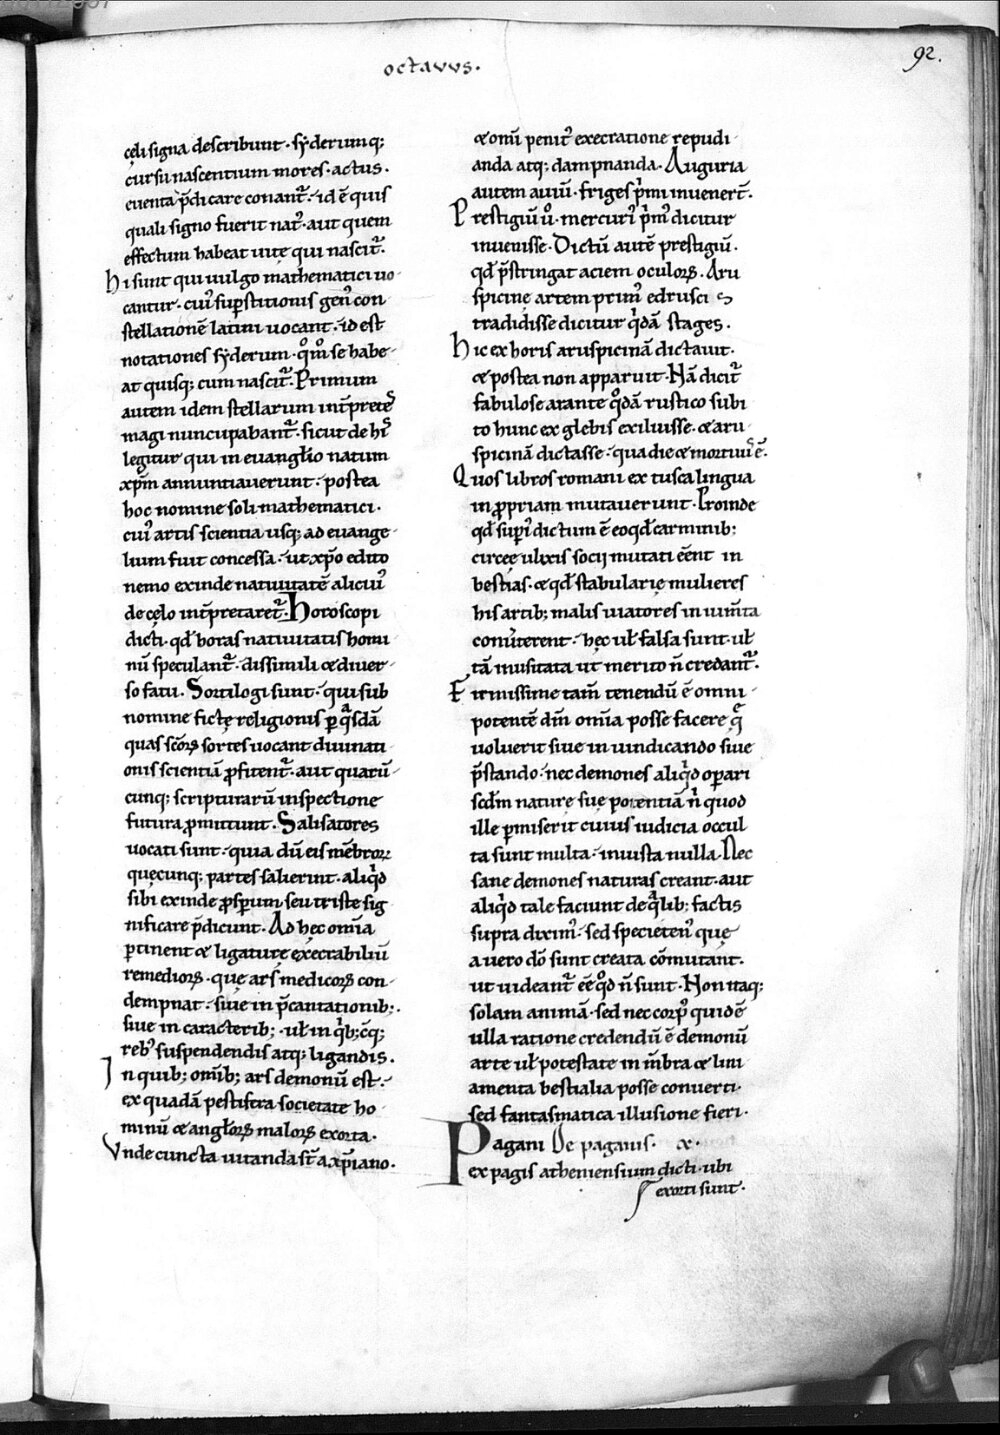 octavus.
92.
cęli signa describunt. syderumq;
cursu nascentium mores. actus.
euenta p̄dicare conant᷑. id ē quis
quali signo fuerit nat᷒. aut quem
effectum habeat uitę qui nascit᷑.
hi sunt qui uulgo mathematici uo
cantur. cui᷒ sup̄stitionis gen᷒ con
stellationē latini uocant. id est
notationes syderum. qͦmͦ se habe
at quisq; cum nascit᷑. Primum
autem idem stellarum int̄pretes
magi nuncupabant᷑. sicut de his
legitur qui in euangl̄io natum
xp̄m annuntiauerunt. postea
hoc nomine soli mathematici.
cui᷒ artis scientia usq; ad euange
lium fuit concessa. ut xp̄o edito
nemo exinde natiuitatē alicui᷒
de cęlo int̄pretaret᷑. Horoscopi
dicti. qđ horas natiuitatis homi
nū speculant᷑. dissimili & diuer
so fatu. Sortilogi sunt. qui sub
nomine fictę religionis ꝑ qͣsdā
quas sc̄oꝝ sortes uocant diuinati
onis scientiā ꝓfitent᷑. aut quarū
cunq; scripturarū inspectione
futura ꝓmittunt. Salisatores
uocati sunt. quia dū eis mēbroꝝ
quęcunq; partes salierint. aliqͥd
sibi exinde ꝓsꝑum seu triste sig
nificare p̄dicunt. Ad hęc om̄ia
ꝑtinent & ligaturę execrabiliū
remedioꝝ. quę ars medicoꝝ con
dempnat. siue in p̄cantationib;.
siue in caracterib;. ul̄ in qͥb;cq;
reb᷒ suspendendis atq; ligandis.
In quib; om̄ib; ars demonū est.
ex quadā pestifera societate ho
minū & angl̄oꝝ maloꝝ exorta.
Vnde cuncta uitanda st̄ a xp̄iano.
& om̄i penit᷒ execratione repudi
anda atq; dampnanda. Auguria
autem auiū. friges p̄mi inuenert̄.
Prestigiū ů. mercuri᷒ p̄m᷒ dicitur
inuenisse. Dictū autē prestigiū.
qđ p̄stringat aciem oculoꝝ. Aru
spicinę artem prim᷒ edrusci s
tradidisse dicitur qͥdā stages.
hic ex horis aruspicinā dictauit.
& postea non apparuit. Nā dicit᷑
fabulose arante qͦdā rustico subi
to hunc ex glebis exiluisse. & aru
spicinā dictasse. qua die & mortuus ē.
Quos libros romani ex tusca lingua
in ꝓpriam mutauerunt. Proinde
qđ superi᷒ dictum ē eo qđ carminib;
circeę ulixis socii mutati eēnt in
bestias. & qđ stabularię mulieres
his artib; malis uiatores in ium̄ta
conũterent. hęc ul̄ falsa sunt. ul̄
tā inusitata ut merito n̄ credant᷑.
Firmissime tam̄ tenendū ē omni
potentē dm̄ om̄ia posse facere qͣ
uoluerit siue in uindicando siue
p̄stando. nec demones aliqͥd oꝑari
scđm naturę suę potentiā nͥ quod
ille ꝑmiserit cuius iudicia occul
ta sunt multa. iniusta nulla. Nec
sane demones naturas creant. aut
aliqͥd tale faciunt de qͥlib; factis
supra dixim᷒. sed specieten᷒ quę
a uero dō sunt creata cōmutant.
ut uideant᷑ eē qͦd n̄ sunt. Non itaq;
solam animā. sed nec corp᷒ quidē
ulla ratione credendū ē demonū
arte ul̄ potestate in m̄bra & lini
amenta bestialia posse conuerti.
sed fantasmatica illusione fieri.
Pagani De paganis. &.
ex pagis atheniensium dicti. ubi
exorti sunt.